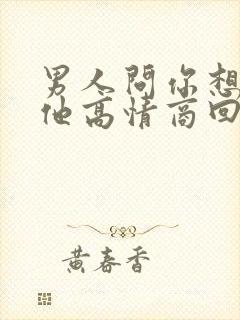 男人問你想
他高情商回
黃春香